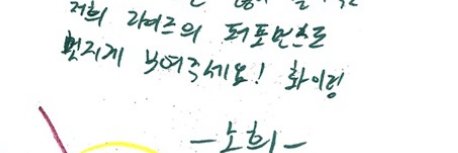 저희 라이즈의 퍼포먼스로
멋지게 보여주세요! 화이팅
-소희-